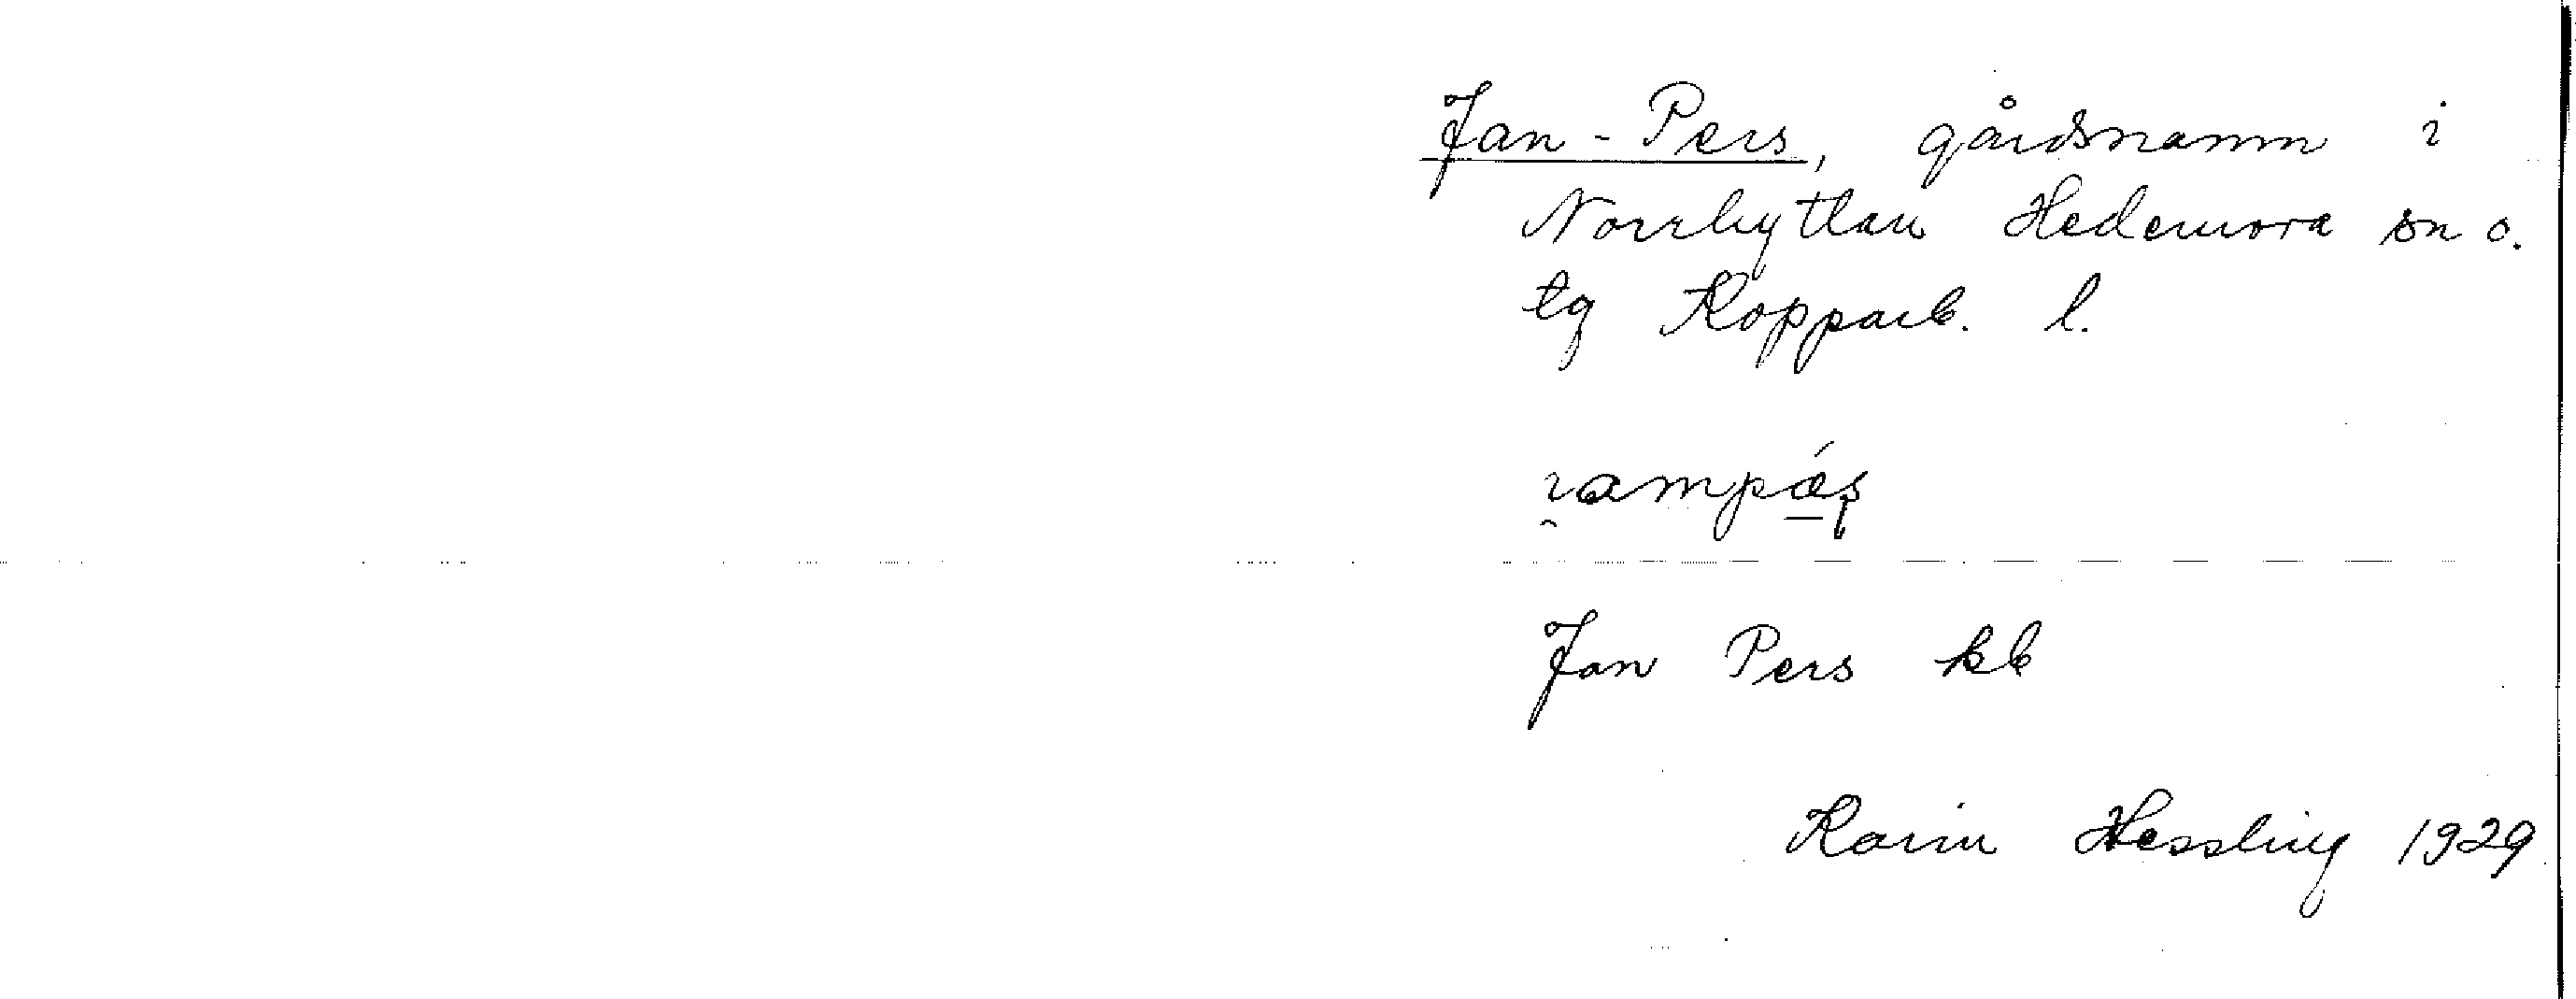 Jan-Pers, gårdsnamn i
Norrhyttan Hedemora sn o.
tg Kopparb. l.
Jan Pers kb
Karin Hessling 1929